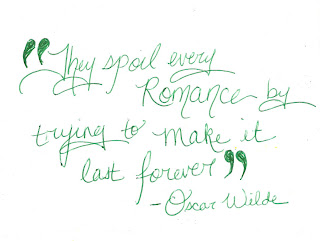 "They spoil every
Romance by
trying to make it
last forever"
-Oscar Wilde